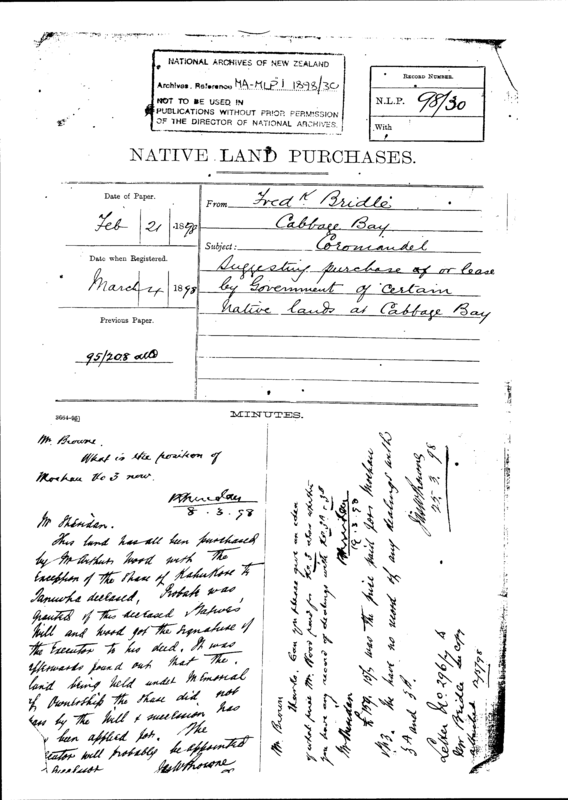 NATIONAL ARCHIVES OF NEW ZEALAND
Archives Reference MA-MLP 1 1898/30
NOT TO BE USED IN
PUBLICATIONS WITHOUT PRIOR PERMISSION
OF THE DIRECTOR OF NATIONAL ARCHIVES.
RECORD NUMBER.
N.L.P. 98/30
With
NATIVE LAND PURCHASES.
Date of Paper.
Feb 21 1898
Date when Registered.
March 4 1898
Previous Paper.
95/208
From Fred K Bridle
Cabbage Bay
Subject: Coromandel
Suggesting purchase of or lease
by Government of certain
Native lands at Cabbage Bay
MINUTES.
Mr. Browne.
What is the position of
Moehau No 3 now.
8.3.98
Mr Sheridan.
This land has all been purchased
by Mr Arthur Wood with the
exception of the share of
deceased, Probate was
granted of this deceased Natives
Will and Wood got the signature of
the Executor to his deed. It was
afterwards found out that the
land being held under Memorial
of Ownership the share did not
pass by the Will & succession has
been applied for. The
will probably be appointed
Mr Brown
Thanks. Can you please give an idea
of what price Mr. Wood paid for No 3 also whether
you have any record of dealings with No 3A
Mr Sheridan
was the price paid for Moehau
No 3. We have no record of any dealings with
3A and 3B.
25.3.98
Letter No 296 to
Mr Bridle see copy
attached